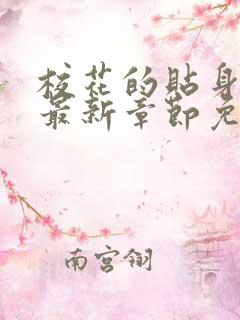 校花的贴身
最新章节免
南宫翎